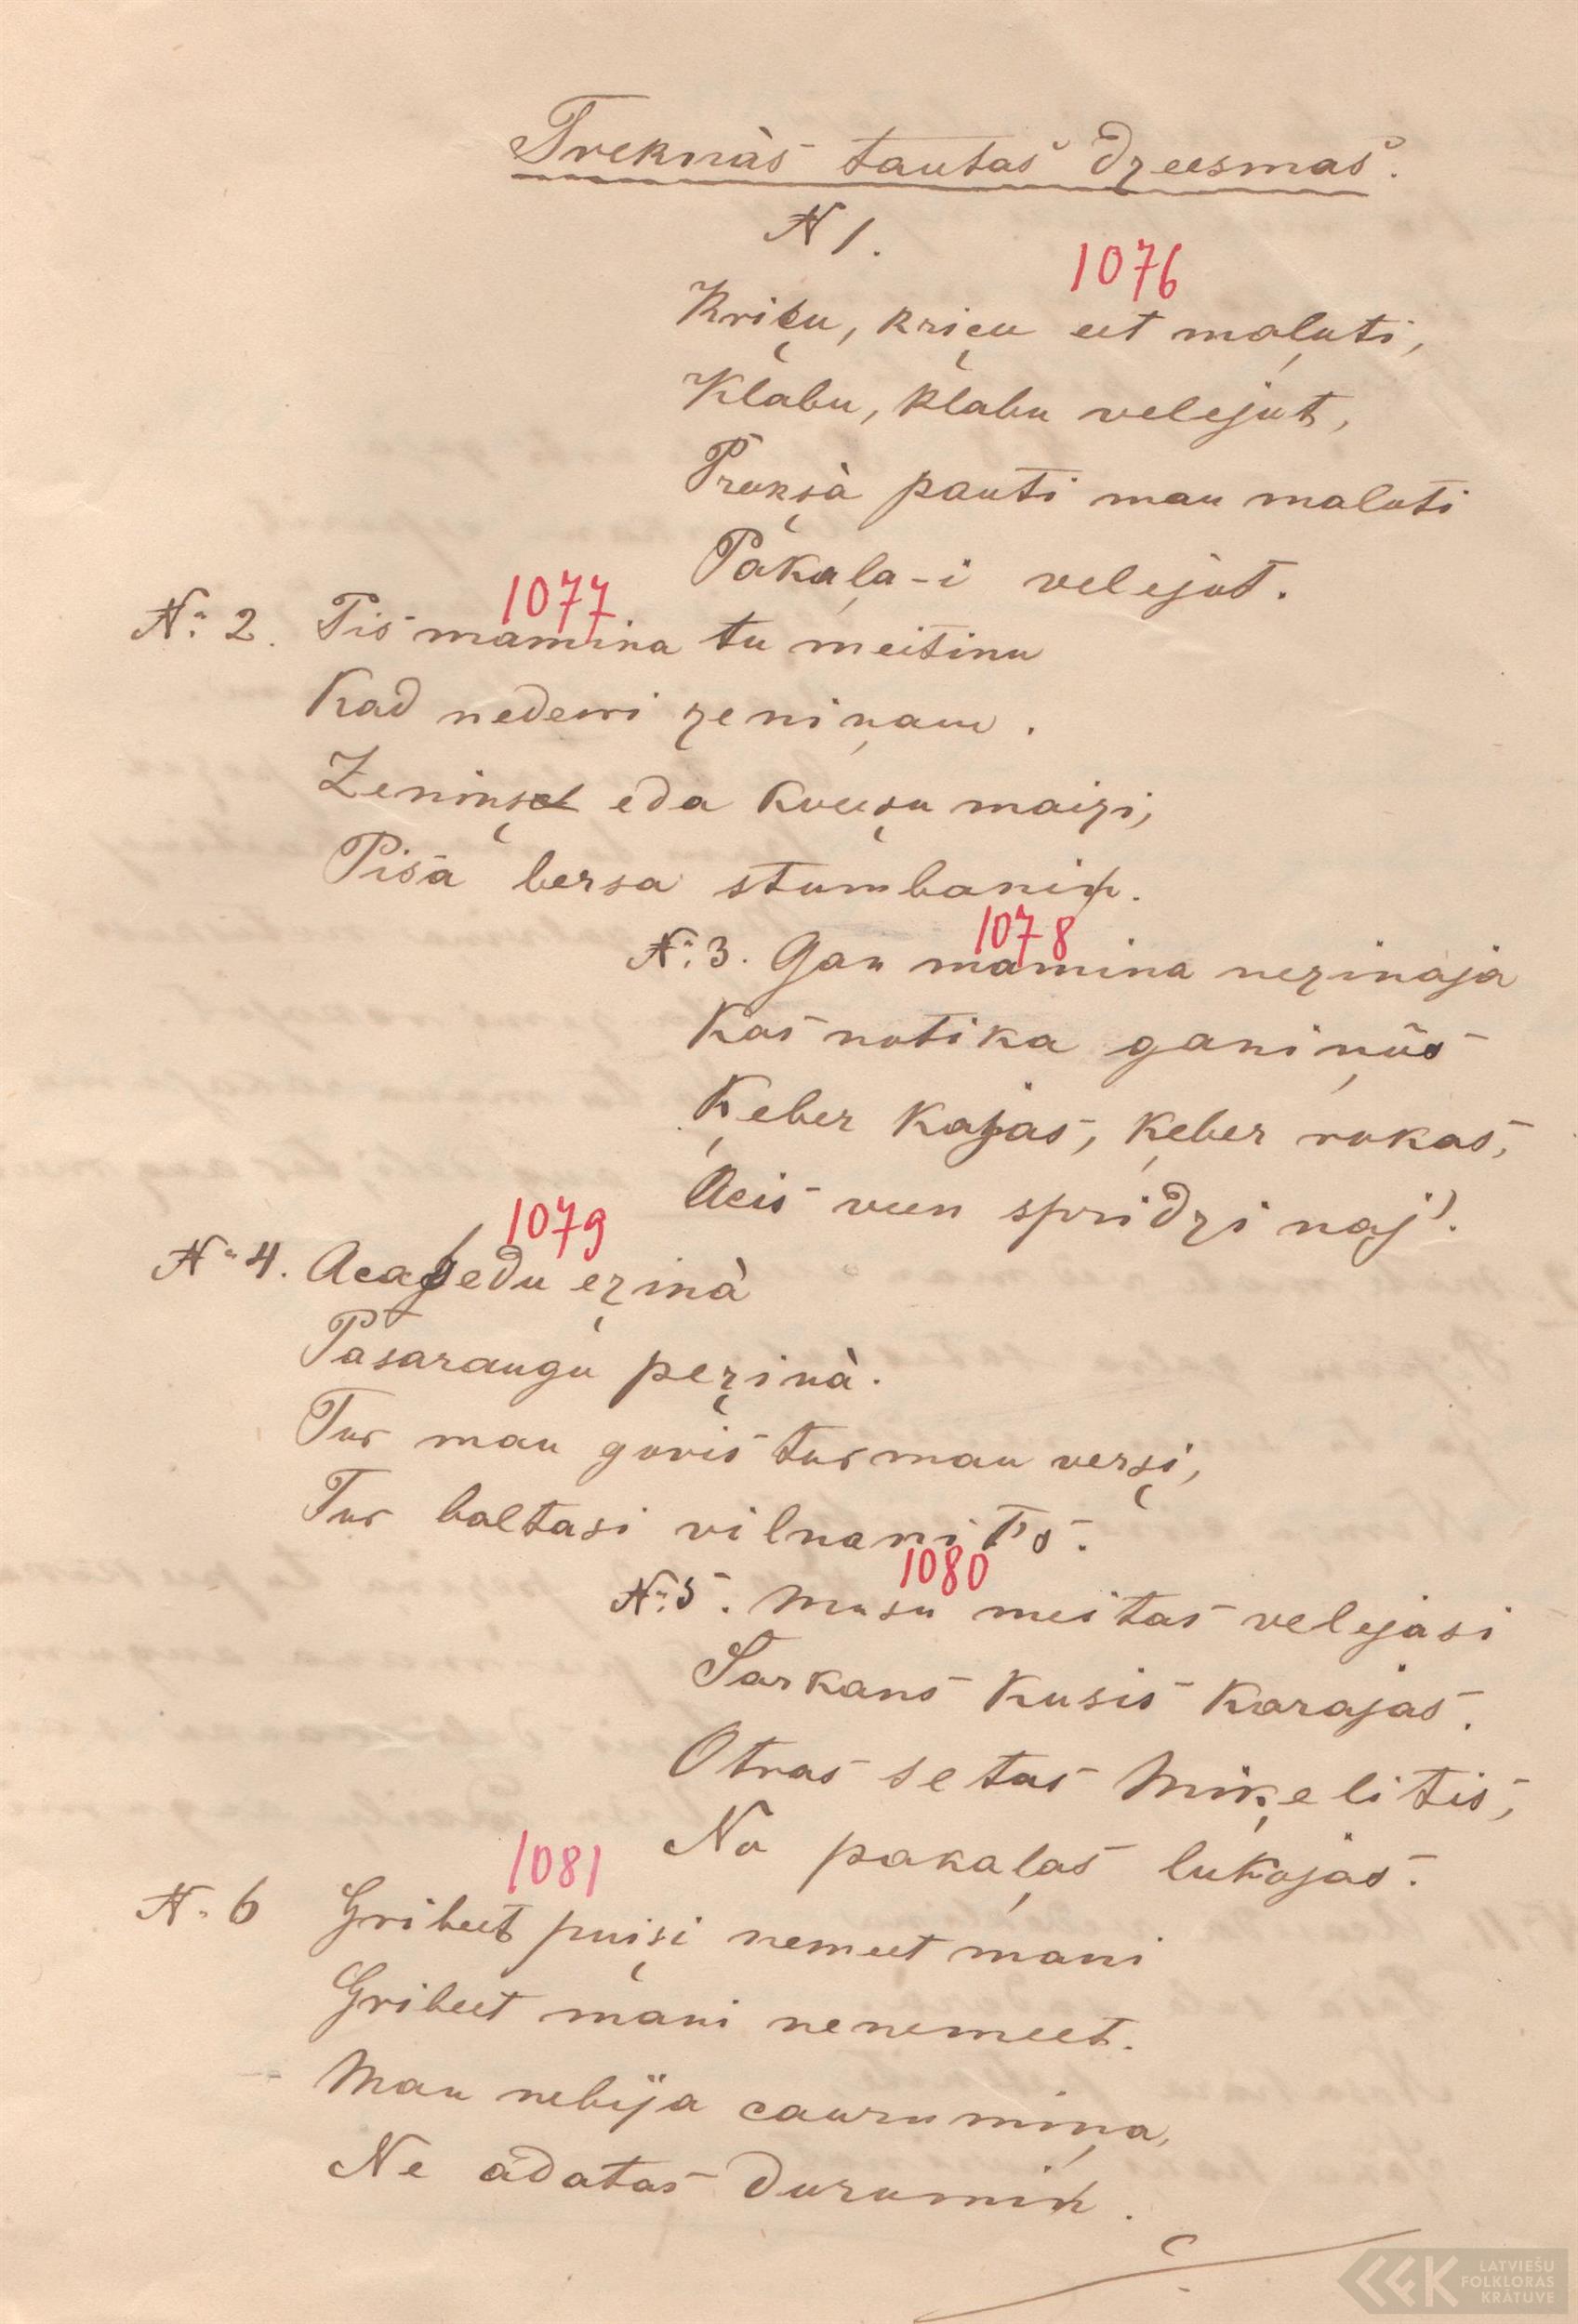 Treknàs tautas dzeesmas.
N 1.
1076
Kriçu, kriçu eet maļuti,
Klabu, klabu velejut,
Prukşà pauti man maluti
Pakaļa-i velejut.
1077
№ 2. Pis mamina tu meitinu
Kad nedewi zeniņam.
Zeninş eda kveeşu maizi,
Pisa bersa stumbanin.
1078
№ 3. Gan mamina nezinaja
Kas notika ganiņûs
Ķeber kajas, ķeber rokas,
Acis veen spridzinaj'.
1079
№ 4. edu ezinà
Pasaraugu pezinà.
Tur man govis tur man verşi,
Tur baltasi vilnanits.
1080
№ 5. Musu meitas velejasi
Sarkans kusis karajas.
Otras setas Miķelitis,
No pakaļas lukojas.
1081
N. 6 Gribeet puişi nemeet mani
Gribeet mani nenemeet.
Man nebija caurumiņa,
Ne adatas durumin.
LATVIEŠU
FOLKLORAS
KRĀTUVE